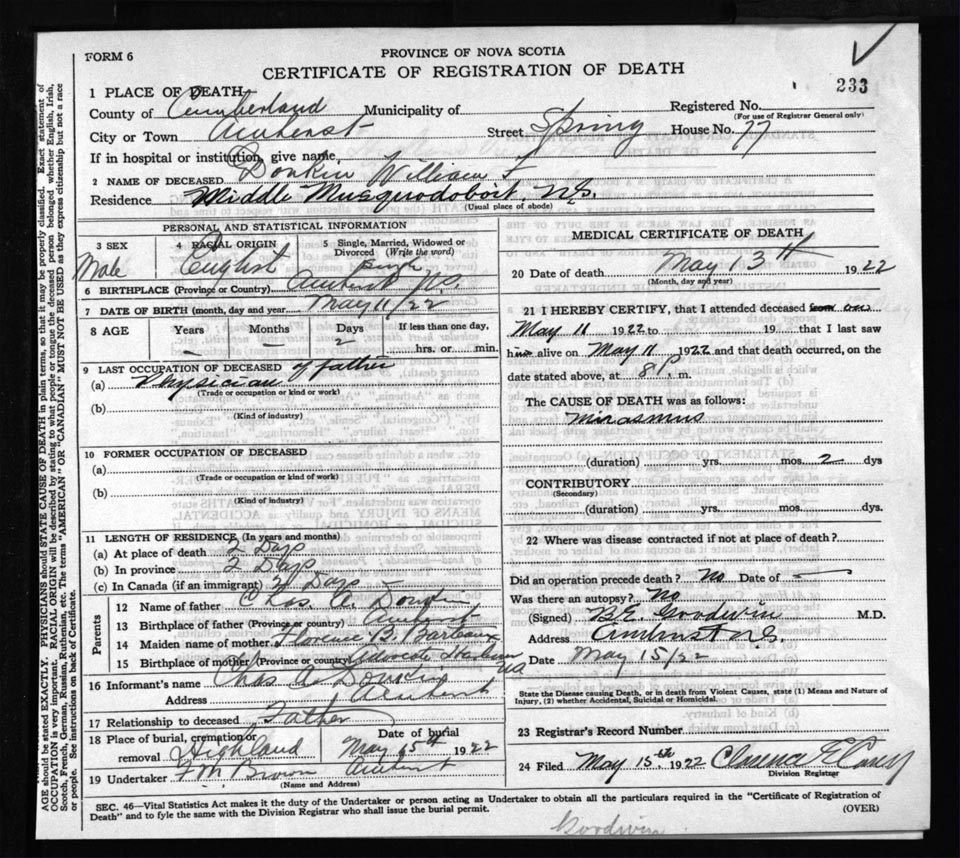 FORM 6
PROVINCE OF NOVA SCOTIA
CERTIFICATE OF REGISTRATION OF DEATH
233
1 PLACE OF DEATH
County of Cumberland Municipality of Registered No.
(For use of Registrar General only)
City or Town Amherst Street Spring House No. 77
If in hospital or institution, give name
2 NAME OF DECEASED Donkin William F
Residence Middle Musquodoboit, N.S.
(Usual place of abode)
PERSONAL AND STATISTICAL INFORMATION
3 SEX 4 RACIAL ORIGIN 5 Single, Married, Widowed or Divorced (Write the word)
Male English Single
6 BIRTHPLACE (Province or Country) Amherst N.S.
7 DATE OF BIRTH (month, day and year) May 11/22
8 AGE Years Months Days If less than one day,
– – 2 hrs. or min.
9 LAST OCCUPATION OF DECEASED of father
(a) Physician
(Trade or occupation or kind or work)
(b)
(Kind of industry)
10 FORMER OCCUPATION OF DECEASED
(a)
(Trade or occupation or kind or work)
(b)
(Kind of industry)
11 LENGTH OF RESIDENCE (In years and months)
(a) At place of death 2 Days
(b) In province 2 Days
(c) In Canada (if an immigrant) 2 Days
Parents
12 Name of father Chas. A. Donkin
13 Birthplace of father (Province or country) Amherst
14 Maiden name of mother Florence B.
15 Birthplace of mother (Province or country) Advocate Harbour NS
16 Informant's name Chas A Donkin
Address Amherst
17 Relationship to deceased Father
18 Place of burial, cremation or removal Highland Date of burial May 15th 1922
19 Undertaker F M Brown Amherst
(Name and Address)
MEDICAL CERTIFICATE OF DEATH
20 Date of death May 13th 1922
(Month, day and year)
21 I HEREBY CERTIFY, that I attended deceased from on
May 11 1922 to 19 that I last saw
him alive on May 11 1922 and that death occurred, on the
date stated above, at 8 P. m.
The CAUSE OF DEATH was as follows:
Mirasmus
(duration) yrs. mos. 2 dys
CONTRIBUTORY
(Secondary)
(duration) yrs. mos. dys.
22 Where was disease contracted if not at place of death?
Did an operation precede death? No Date of –
Was there an autopsy? No
(Signed) B.E. Goodwin M.D.
Address Amherst N.S.
Date May 15/22
State the Disease causing Death, or in death from Violent Causes, state (1) Means and Nature of
Injury, (2) whether Accidental, Suicidal or Homicidal.
23 Registrar's Record Number
24 Filed May 15th. 1922 Clarence E Casey
Division Registrar
SEC. 46—Vital Statistics Act makes it the duty of the Undertaker or person acting as Undertaker to obtain all the particulars required in the "Certificate of Registration of
Death" and to fyle the same with the Division Registrar who shall issue the burial permit. (OVER)
Goodwin
AGE should be stated EXACTLY. PHYSICIANS should STATE CAUSE OF DEATH in plain terms, so that it may be properly classified. Exact statement of
OCCUPATION is very important. RACIAL ORIGIN will be described by stating to what people or tongue the deceased person belonged whether English, Irish,
Scotch, French, German, Russian, Ruthenian, etc. The terms "AMERICAN" OR "CANADIAN" MUST NOT BE USED as they express citizenship but not a race
or people. See instructions on back of Certificate.